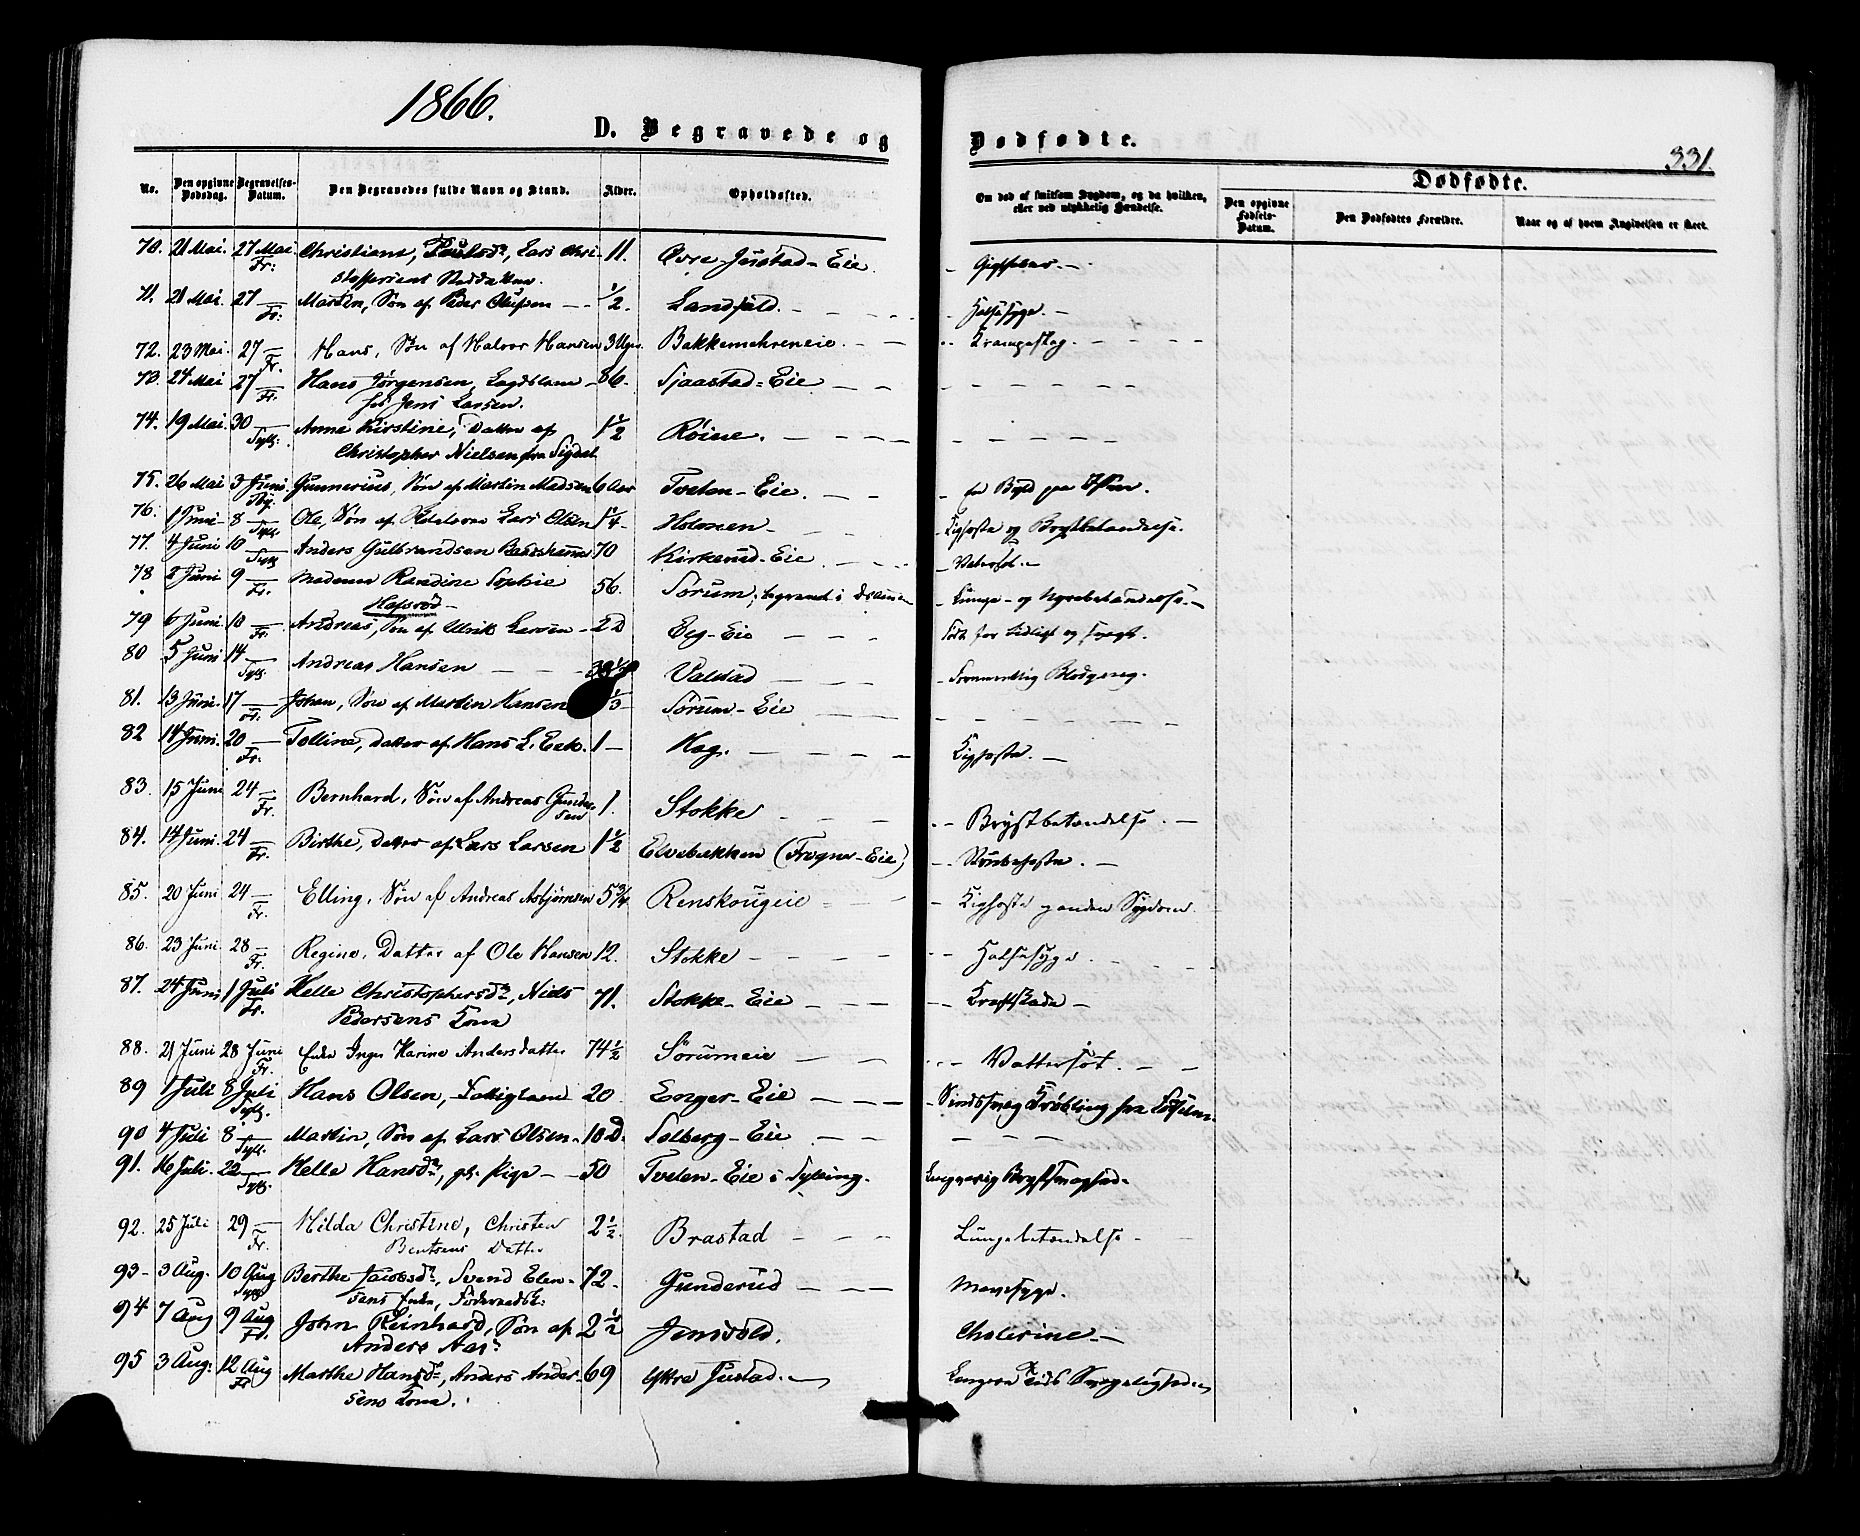 1866.
D. Begravede og Dødfødte.
331.
No. Den opgivne Dødsdag. Begravelses-Datum. Den Begravedes fulde Navn og Stand. Alder. Opholdssted. Om død af smitsom Sygdom, og da hvilken, eller ved ulykkelig Hændelse.
Dødfødte.
Den opgivne Fødsels-Datum. Den Dødfødtes Forældre. Naar og af hvem Angivelsen er skeet.
70. 21 Mai. 27 Mai Christiane, Lars Chri- 11. Øvre Justad-Eie.
Fr. stoffersens
71. 21 Mai. 27 — Martin, Søn af Peder Olufsen — 1/2. Landfald. Halssyge.
Fr.
72. 23 Mai. 27 — Hans, Søn af Halvor Hansen 3 Uger Bakkemehreneie. Krampeslag.
Fr.
73. 24 Mai 27 — Hans Jørgensen, Lægdslem 86. Sjaastad-Eie
Fr. hos Jens Larsen.
74. 19 Mai. 30 — Anne Kirstine, Datter af 1 1/2 Røine.
Syll. Christopher Nielsen fra Sigdal
75. 26 Mai 3 Juni Gunnerius, Søn af Martin Madsen 6 Aar Tveten-Eie. en Byld paa
76. 1 Juni 8 — Ole, Søn af Lars Olsen 1 1/4 Holmen Kighoste og Brystbetændelse.
Syll.
77. 4 Juni 10 — Anders Gulbrandsen 70 Kirkerud-Eie. Vatersot.
Syll.
78 2 Juni 9 — Madame Randine Sophie 56. Sørum, begravet i Lunge- og Nyrebetændelse.
Fr. Hafsrød
79 6 Juni 10 — Andreas, Søn af Ulrik Larsen 2 D Eeg-Eie Født for tidligt og svagt.
Fr.
80 5 Juni 14 — Andreas Hansen Valstad Blodgang.
Syll.
81. 13 Juni. 17 — Johan, Søn af Martin Hansen Sørum-Eie
Fr.
82 14 Juni. 20 — Tolline, Datter af Hans L. Eek. 1 — Hag. Kighoste.
Fr.
83. 15 Juni 24 — Bernhard, Søn af Andreas Gunder- 1. Stokke Brystbetændelse.
Fr. sen
84. 14 Juni. 24 — Birthe, Datter af Lars Larsen 1 1/2 Elvebakken (Frogner-Eie) Strubehoste.
Fr.
85. 20 Juni 24 — Elling, Søn af Andreas Asbjørnsen 5 3/4 Renskougeie Kighoste Sygdom.
Fr.
86. 23 Juni 28 — Regine, Datter af Ole Hansen 12. Stokke Halssyge.
Fr.
87. 24 Juni 1 Juli Helle Christophersdr, Niels 71. Stokke-Eie Kræftskade
Fr. Pedersens Kone
88. 21 Juni 28 Juni Enke Inger Karine Andersdatter 74 1/2 Sørumeie Vattersot.
Fr.
89 1 Juli 8 Juli Hans Olsen, Fattiglem 20. Enger-Eie Sindssvag Krøbling fra Fødselen.
Syll.
90 4 Juli 8 — Martin, Søn af Lars Olsen 10 D. Solberg-Eie
Syll.
91. 16 Juli. 22 — Helle Hansdr, gl. Pige 50 Tveten-Eie i Sylling. Langvarig Brystsvaghed.
Syll.
92. 25 Juli 29 — Hilda Christine, Christen 2 1/2 Brastad Lungebetændelse
Fr. Bentsens Datter
93 3 Aug. 10 Aug Berthe Jacobsdr, Svend Elen- 72. Gunderud Mavesyge.
Sylg sens Enke, Føderaadsk:
94 7 Aug 9 Aug John Reinhard, Søn af 2 1/2 Jensvold. Cholerine
Fr. Anders Aas
95 3 Aug: 12 Aug Marthe Hansdr, Anders Ander- 69 Ytre Justad. Længere Tids Svagelighed
Fr sens Kone.